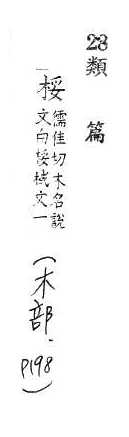 23 類篇
桵 儒佳切木名說
文白桵棫文一
(木部. P198)